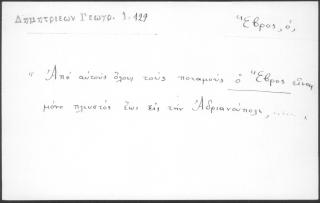 Δημητριέων Γεωγρ. 1. 129
Ἕβρος, ὁ,
" Ἀπὸ αὐτοὺς ὅλους τοὺς ποταμοὺς ὁ Ἕβρος εἶναι
μόνο πλευστὸς ἕως εἰς τὴν Ἀδριανούπολι, ......